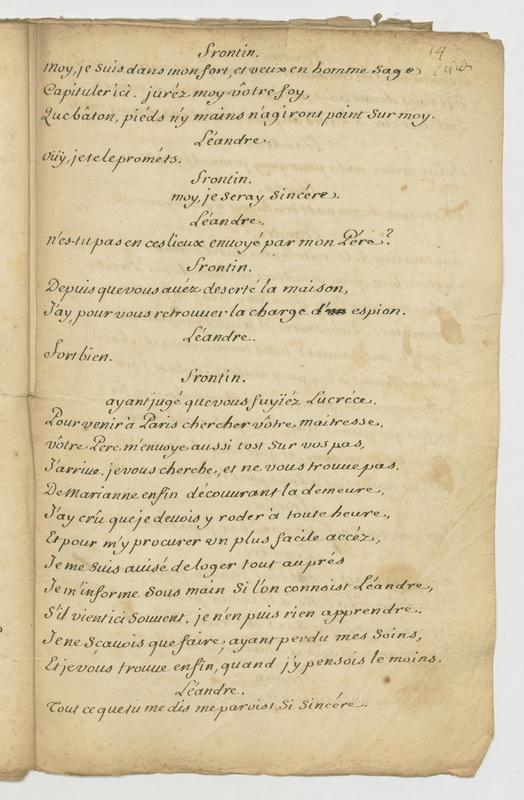 14
Frontin.
Moy, je suis dans mon fort, et veux en homme sage
Capituler ici. juréz moy vôtre foy,
Que bâton, piéds n'y mains n'agiront point sur moy.
Léandre.
Vüÿ, je te le prométs.
Frontin.
moy, je seray sincére.
Léandre.
n'es-tu pas en ces lieux enuoyé par mon Pére?
Frontin.
Depuis que vous auéz deserté la maison,
J'ay, pour vous retrouuer la charge d' espion.
Léandre.
Fort bien.
Frontin.
ayant jugé que vous fuyïéz Lucréce.
Pour venir à Paris chercher vôtre maitresse,
vôtre Pere m'enuoye aussi tost sur vos pas,
J'arriue. je vous cherche, et ne vous trouue pas.
De Marianne enfin découurant la demeure,
J'ay crû que je deuois y roder à toute heure,
Et pour m'y procurer vn plus facile accéz,
Je me suis auisé de loger tout auprés
Je m'informe sous main si l'on connoist Léandre,
S'il vient ici souuent, je n'en puis rien apprendre.
Je ne scauois que faire, ayant perdu mes soins,
Et je vous trouue enfin, quand j'y pensois le moins.
Léandre.
Tout ce que tu me dis me paroist si sincére.